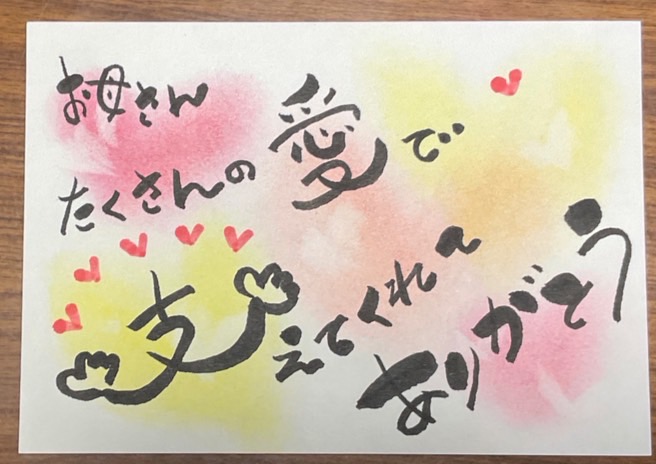 お母さん
たくさんの
愛で
支えてくれて
ありがとう